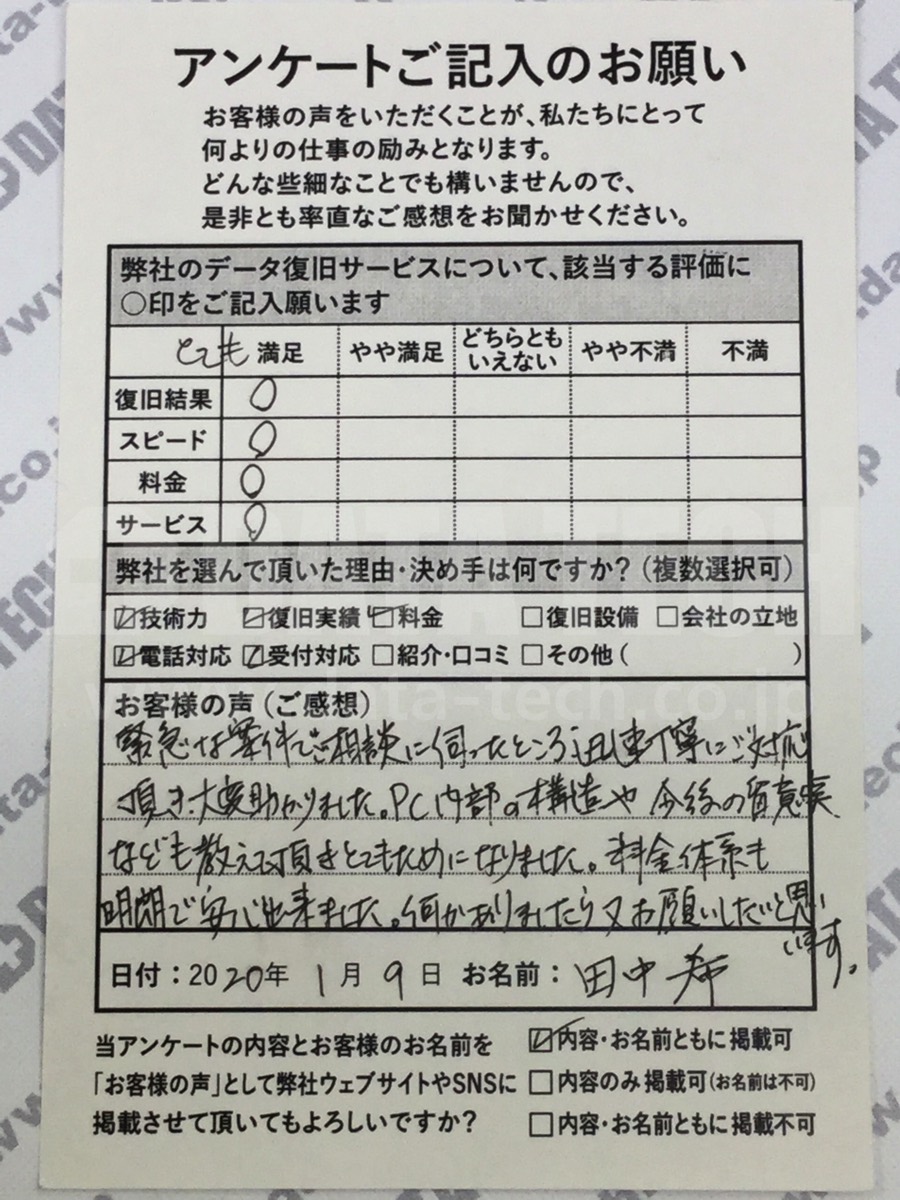 アンケートご記入のお願い
お客様の声をいただくことが、私たちにとって
何よりの仕事の励みとなります。
どんな些細なことでも構いませんので、
是非とも率直なご感想をお聞かせください。
弊社のデータ復旧サービスについて、該当する評価に
○印をご記入願います
とても 満足 やや満足 どちらとも いえない やや不満 不満
復旧結果 ○
スピード ○
料金 ○
サービス ○
弊社を選んで頂いた理由・決め手は何ですか?(複数選択可)
☑技術力 ☑復旧実績 ☑料金 □復旧設備 □会社の立地
☑電話対応 ☑受付対応 □紹介・口コミ □その他( )
お客様の声(ご感想)
緊急な案件でご相談に伺ったところ迅速丁寧にご対応
頂き、大変助かりました。PC内部の構造や今後の留意点
なども教えて頂きとてもためになりました。料金体系も
明朗で安心出来ました。何かありましたら又お願いしたいと思い
います。
日付:2020年 1月 9日 お名前: 田中 希
当アンケートの内容とお客様のお名前を
「お客様の声」として弊社ウェブサイトやSNSに
掲載させて頂いてもよろしいですか?
☑内容・お名前ともに掲載可
□内容のみ掲載可(お名前は不可)
□内容・お名前ともに掲載不可
DATA TECH
www.data-tech.co.jp